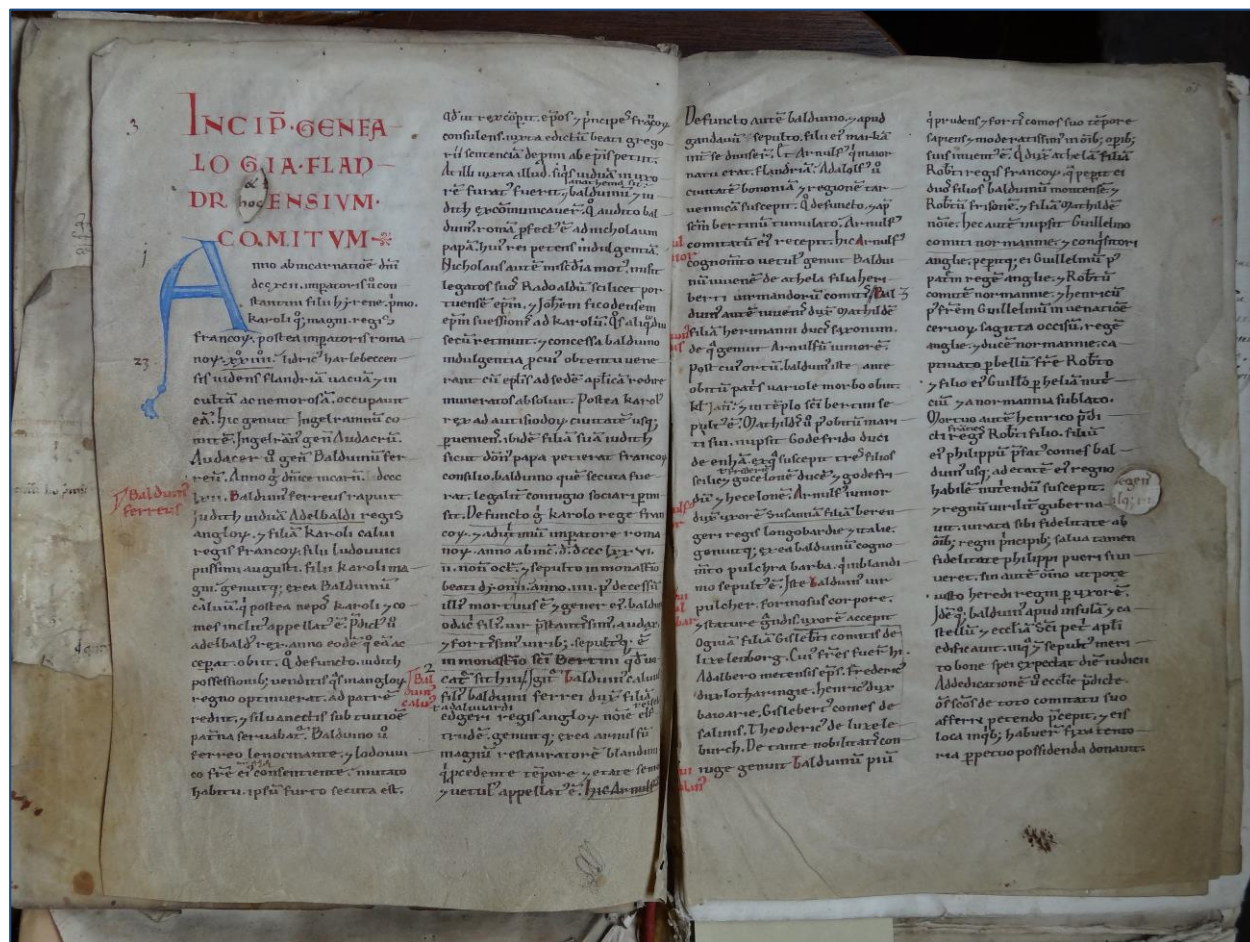 INCIP̄·GENEA
LOGIA·FLAN
DRENSIVM·
COMITVM
Anno ab incarnatiōe dn̄i
dccxcii. impatoris u̅ con
stantini filii hyrene. p̄mo.
karoli q; magni. regis
francoꝝ. postea impatoris roma
noꝝ. xxiiii. lidric' harlebeccen
sis uidens flandriā uacuā ⁊ in
cultā ac nemorosā. occupauit
eā. hic genuit Ingelrannū co
mitē. Ingelrān' gen̄ Audacrū.
Audacer u̅ gen̄ Balduinū fer
reū. Anno ḡ dn̄ice incarn̄. dccc
lxii. Balduin' ferreus rapuit
Judith uiduā Adelbaldi regis
angloꝝ. ⁊ filiā karoli calui
regis francoꝝ. filii ludouuici
piissimi augusti. filii karoli ma
gni. genuitq; ex ea Balduinū
caluū. q̇ postea nepoˢ karoli ⁊ co
mes inclit' appellat' ē. p̄dict' u̅
adelbald' rex. anno eodē q̊ eā ac
cepat. obiit. Q̊ defuncto. iudith
possessionib; venditis q̊s in angloꝝ
regno optinuerat. ad patrē
rediit. ⁊ siluanectis sub tuitiōe
pat̄na seruabat'. Balduino u̅
ferreo lenocinante. ⁊ lodouui
co fr̄e ei' consentiente. mutato
habitu. ipsū furto secuta est.
Balduin'
ferreus
3
1
23
Qd̄ ut rex cōpit. ep̄os ⁊ p̄ncipeˢ frācoꝝ
consulens. iuxta edictū beati grego
rii sentenciā depmi ab ep̄is petiit.
At illi iuxta illud. siq̇s uiduā in uxo
rē furat' fuerit, anathema sit. balduinū ⁊ iu
dith excōmunicauer̄. Q̊ audito bal
duin'. romā ꝓfect' ē ad nicholaum
papā. hui' rei petens indulgentiā.
Nicholaus autē misc̄dia mot'. misit
legatos suos Radoaldū scilicet por
tuensē ep̄m. ⁊ Joh̄em ficodensem
ep̄m suession̄ ad karolū. Q̊s aliq̇diu
secū retinuit. ⁊ concessa balduino
indulgentia ꝓ cui' obtentu uene
rant cū ep̄lis ad sedē ap̄licā redire
muneratos absoluit. Postea karol'
rex ad autisiodoꝝ ciuitatē usq;
puenien̄. ibidē filiā suā iudith
sicut dōn' papa petierat francoꝝ
consilio. balduino quē secuta fue
rat. legali coniugio sociari pmi
sit. Defuncto ḡ karolo rege fran
coꝝ. ⁊ adusq; imperatore roma
noꝝ. anno ab inc̄. d̄. dccc lxxvi.
ii. non̄ oct̄. ⁊ sepulto in monast̄io
beati dyonisii. anno. iii. p' decessū
illi' mortuus ē ⁊ gener ei' baldui
⁊ fortissim' uirib;. sepultq; ē
in monast̄io sc̄i Bertini qd̄ uo
cat̄ sithiu. Igit̄ Balduin' caluus
fili' balduini ferrei dux̄ filiā
edgeri regis angloꝝ nōie elf
trudē. genuitq; ex ea arnulfū
magnū restauratorē blandinii
q̇ p̄cedente tēpore ⁊ etate senio
⁊ uetul' appellat' ē. hic Arnulf'
2
Bal
duin'
caluˢ
Defuncto autē balduino. ⁊ apud
gandauū sepulto. filii ei' markā
int̄ se diuiser̄. Et Arnulf' q̇ maior
natu erat. flandriā. Adalolf' u̅
ciuitatē bononiā ⁊ regionē tar
uennicā suscepit. Q̊ defuncto. ⁊ ap'
sc̄m bertinū tumulato. Arnulf'
comitatū ei' recepit. hic Arnulf'
cognom̄to uetul' genuit Baldui
nū iuuenē de athela filia heri
berti uirmandorū comitis. Bal
duin' autē iuuenis dux̄ Mathildē
filiā hermanni ducis saxonum.
de q̇ genuit Arnulfū iuniorē.
Post cui' ortū. balduin' iste ante
obitū pat̄s uariole morbo obiit.
kl' Jan̄. ⁊ in tēplo sc̄i bertini se
pult' ē. Mathild' u̅ p' obitū mari
ti sui. nupsit Godefrido duci
de enhā. ex q̊ suscepit tres filios
scilic̄ gocelonē ducē. ⁊ godefri
dū ⁊ hecelonē. Arnulf' iunior
dux̄ uxorē susannā filiā beren
geri regis longobardie ⁊ italie.
genuitq; ex ea balduinū cogno
m̄to pulchra barba. q̇ in blandi
nio sepult' ē. Iste balduin' uir
pulcher. formosus corpore.
⁊ stature g̊ndis. uxorē accepit
Ogiuā filiā Gisleb̄ti comitis de
luxelenborg. Cui' fr̄es fuer̄ hi.
Adalbero metensis ep̄s. frederic'
dux lotharingie. henric' dux
baioarie. Gislebert' comes de
salinis. Theodericˢ de luxele
burch. De tante nobilitatis con
iuge genuit balduinū piū
q̇ prudens ⁊ fortis comos suo tēpore
sapiens ⁊ moderatissim' in ōib; opib;
suis inuent' ē. Q̇ dux̄ athelā filiā
Rob̄ti regis francoꝝ. q̄ pepit ei
duoˢ filios balduinū montensē ⁊
Rob̄tū frisonē. ⁊ filiā Mathildē
nōie. hec autē nupsit Guillelmo
comiti normannie. ⁊ conq̇sitori
anglie. pepitq; ei Guillelmū p'
patrē regē anglie. ⁊ Rob̄tū
comitē normannie. ⁊ henricū
p' fr̄em Guillelmū in uenatiōe
ceruoꝝ sagitta occisū. regē
anglie. ⁊ ducē normannie. ca
ptiuato p bellū fr̄e Rob̄to
⁊ filio ei' Guill̄o p heliā nut̄
ciū ⁊ a normannia sublato.
Mortuo autē henrico p̄di
cti regis Rob̄ti filio. filiū
ei' philippū p̄fat' comes bal
duin' usq; ad etatē ei' regno
habilē nut̄endū suscepit.
⁊ regnū uirilit̄ guberna
uit. iurata sibi fidelitate ab
ōib; regni p̄ncipib; salua tamen
fidelitate philippi pueri si ui
ueret. sin autē oīno ut pote
iusto heredi regni p uxorē.
Idē q; balduin' apud insulā ⁊ ca
stellū ⁊ eccl̄iā sc̄i pet̄ apl̄i
edificauit. in q̄ ⁊ sepult' meri
to bone spei expectat diē iudicii
Ad dedicationē u̅ ecclie p̄dicte.
ōs sc̄os de toto comitatu suo
afferri petendo p̄cepit. ⁊ eis
loca in q̇b; habuer̄ fixa tento
ria ppetuo possidenda donauit.